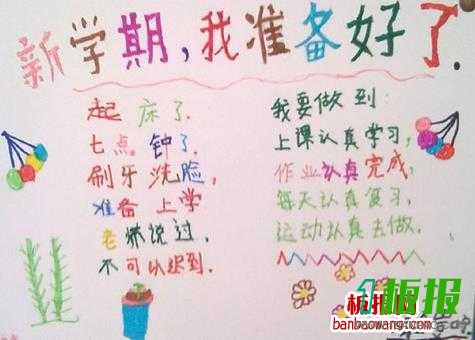 新学期,我准备好了.
起床了.
七点钟了.
刷牙洗脸,
准备上学
老师说过,
不可以迟到.
我要做到:
上课认真学习,
作业认真完成,
每天认真复习,
运动认真去做.
板报
板报网
banbaowang.com